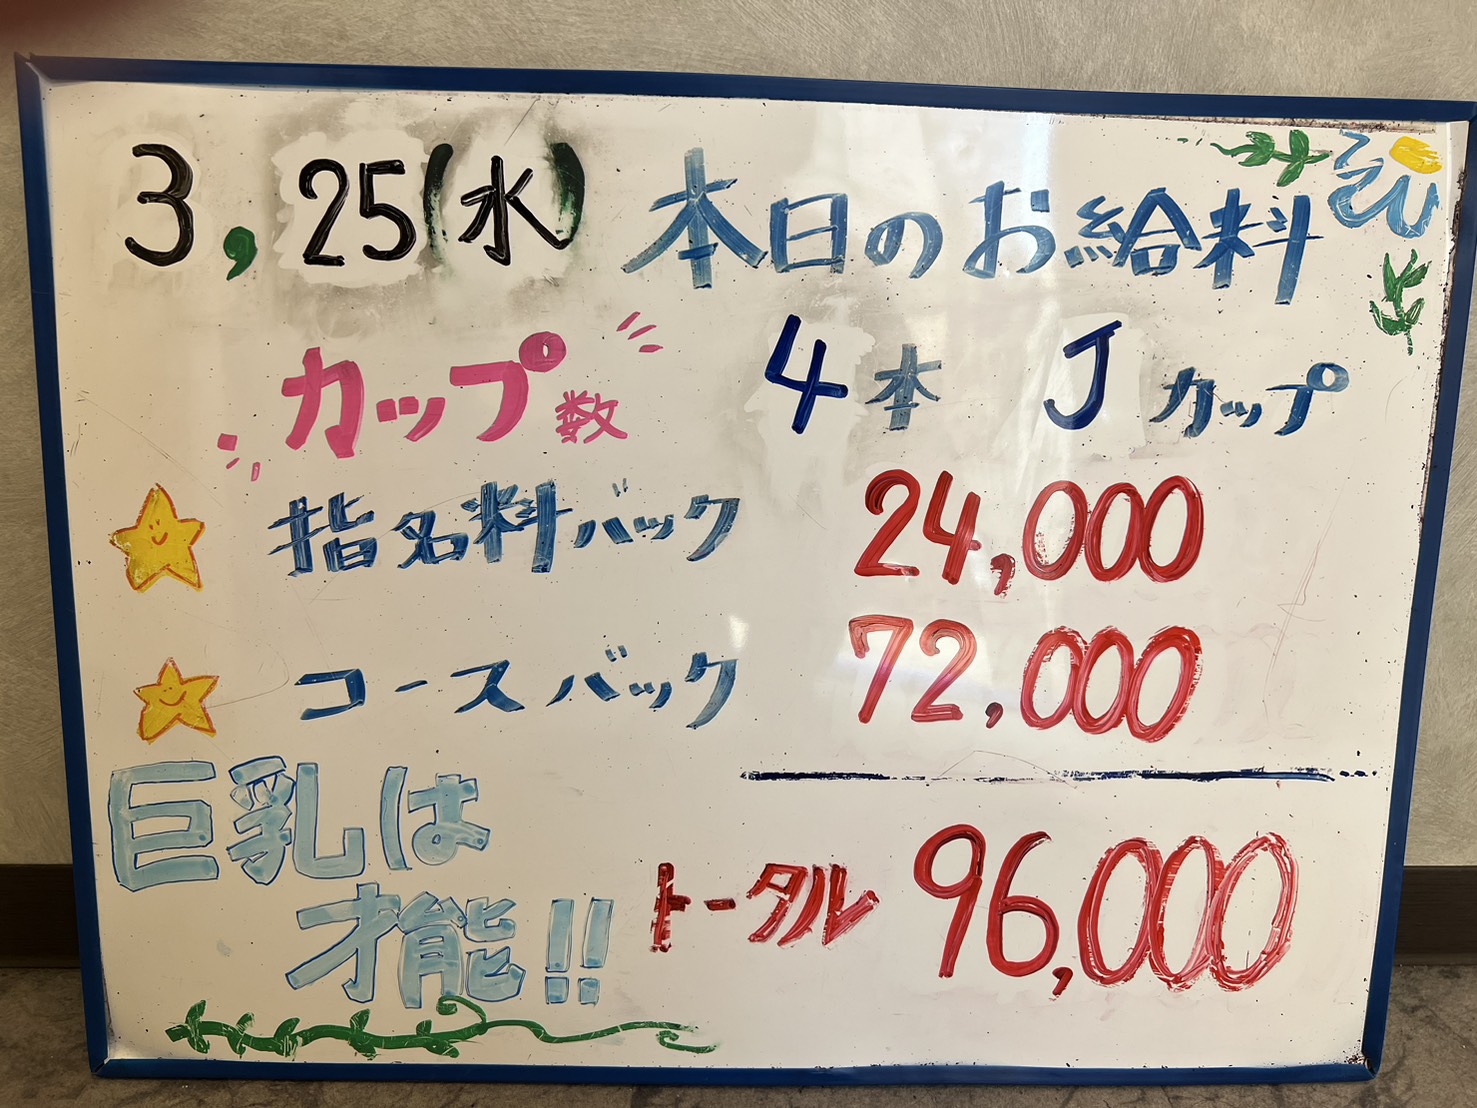 3,25(水) 本日のお給料
カップ数 4本 Jカップ
指名料バック 24,000
コースバック 72,000
巨乳は
才能!!
トータル 96,000